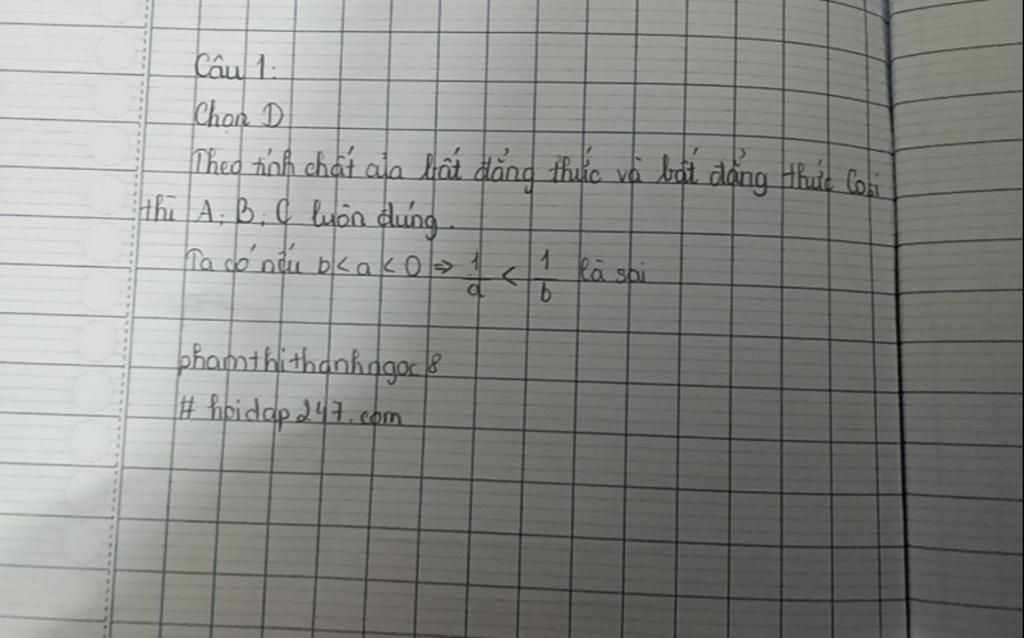 Câu 1:
Chọn D
Theo tính chất của bất đẳng thức và bất đẳng thức Cosi
thì A, B, C luôn đúng.
Ta có nếu b < a < 0 ⇒ 1/a < 1/b là sai
phamthithanhngoc8
# hoidap247.com